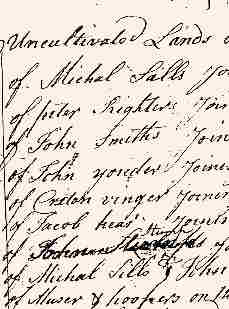 Uncultivated Lands
of Michal Salls Joi
of peter Righter Join
of John Smiths Join
of John yonder Joines
of vinger Joiner
of Jacob hear Joints
of
of Michal Sills & John
of & hoopers on 14